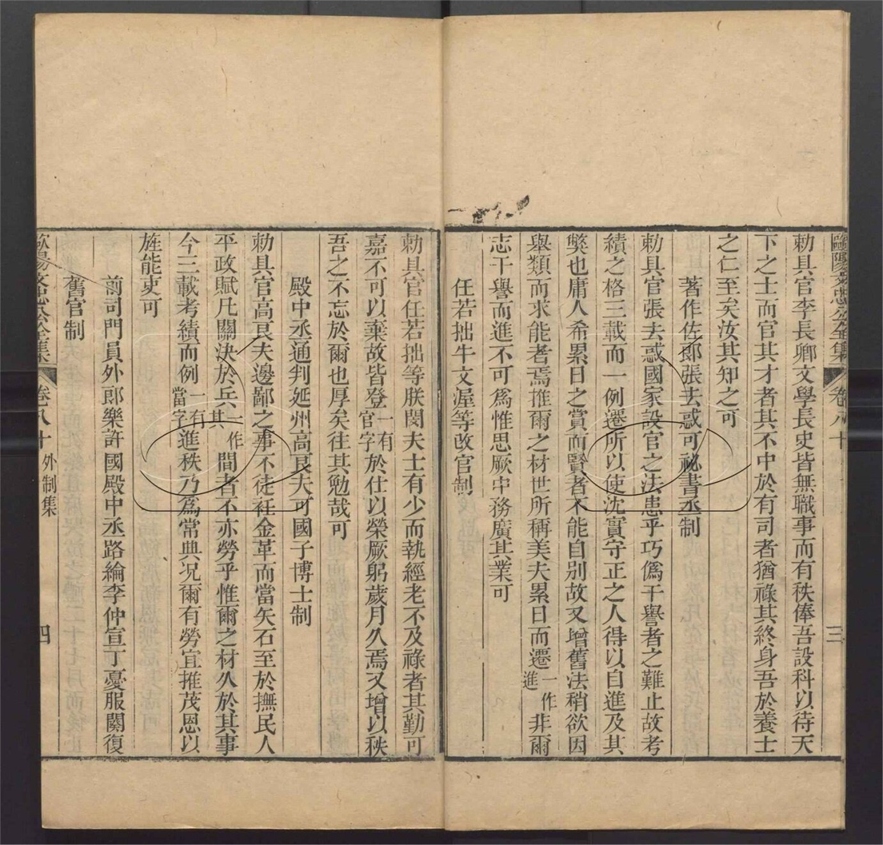 歐陽文忠公全集 卷八十 三
勅具官李長卿文學長史皆無職事而有秩俸吾設科以待天
下之士而官其才者其不中於有司者猶祿其終身吾於養士
之仁至矣汝其知之可
著作佐郎張去惑可祕書丞制
勅具官張去惑國家設官之法患乎巧僞干譽者之難止故考
績之格三載而一例遷所以使沈實守正之人得以自進及其
獘也庸人希累日之賞而賢者不能自别故又增舊法稍欲因
舉類而求能者焉推爾之材世所稱美夫累日而遷一作進非爾
志干譽而進不可爲惟思厥中務廣其業可
任若拙牛文渥等改官制
勅具官任若拙等朕閔夫士有少而執經老不及祿者其勤可
嘉不可以棄故皆登一有官字於仕以榮厥躬歲月久焉又增以秩
吾之不忘於爾也厚矣往其勉哉可
殿中丞通判延州高良夫可國子博士制
勅具官高良夫邊鄙之事不徒衽金革而當矢石至於撫民人
平政賦凡關決於兵一作其間者不亦勞乎惟爾之材久於其事
今三載考績而例一有當字進秩乃爲常典况爾有勞宜推茂恩以
旌能吏可
前司門員外郎樂許國殿中丞路綸李仲宣丁憂服闋復
舊官制
歐陽文忠公全集 卷八十 外制集 四